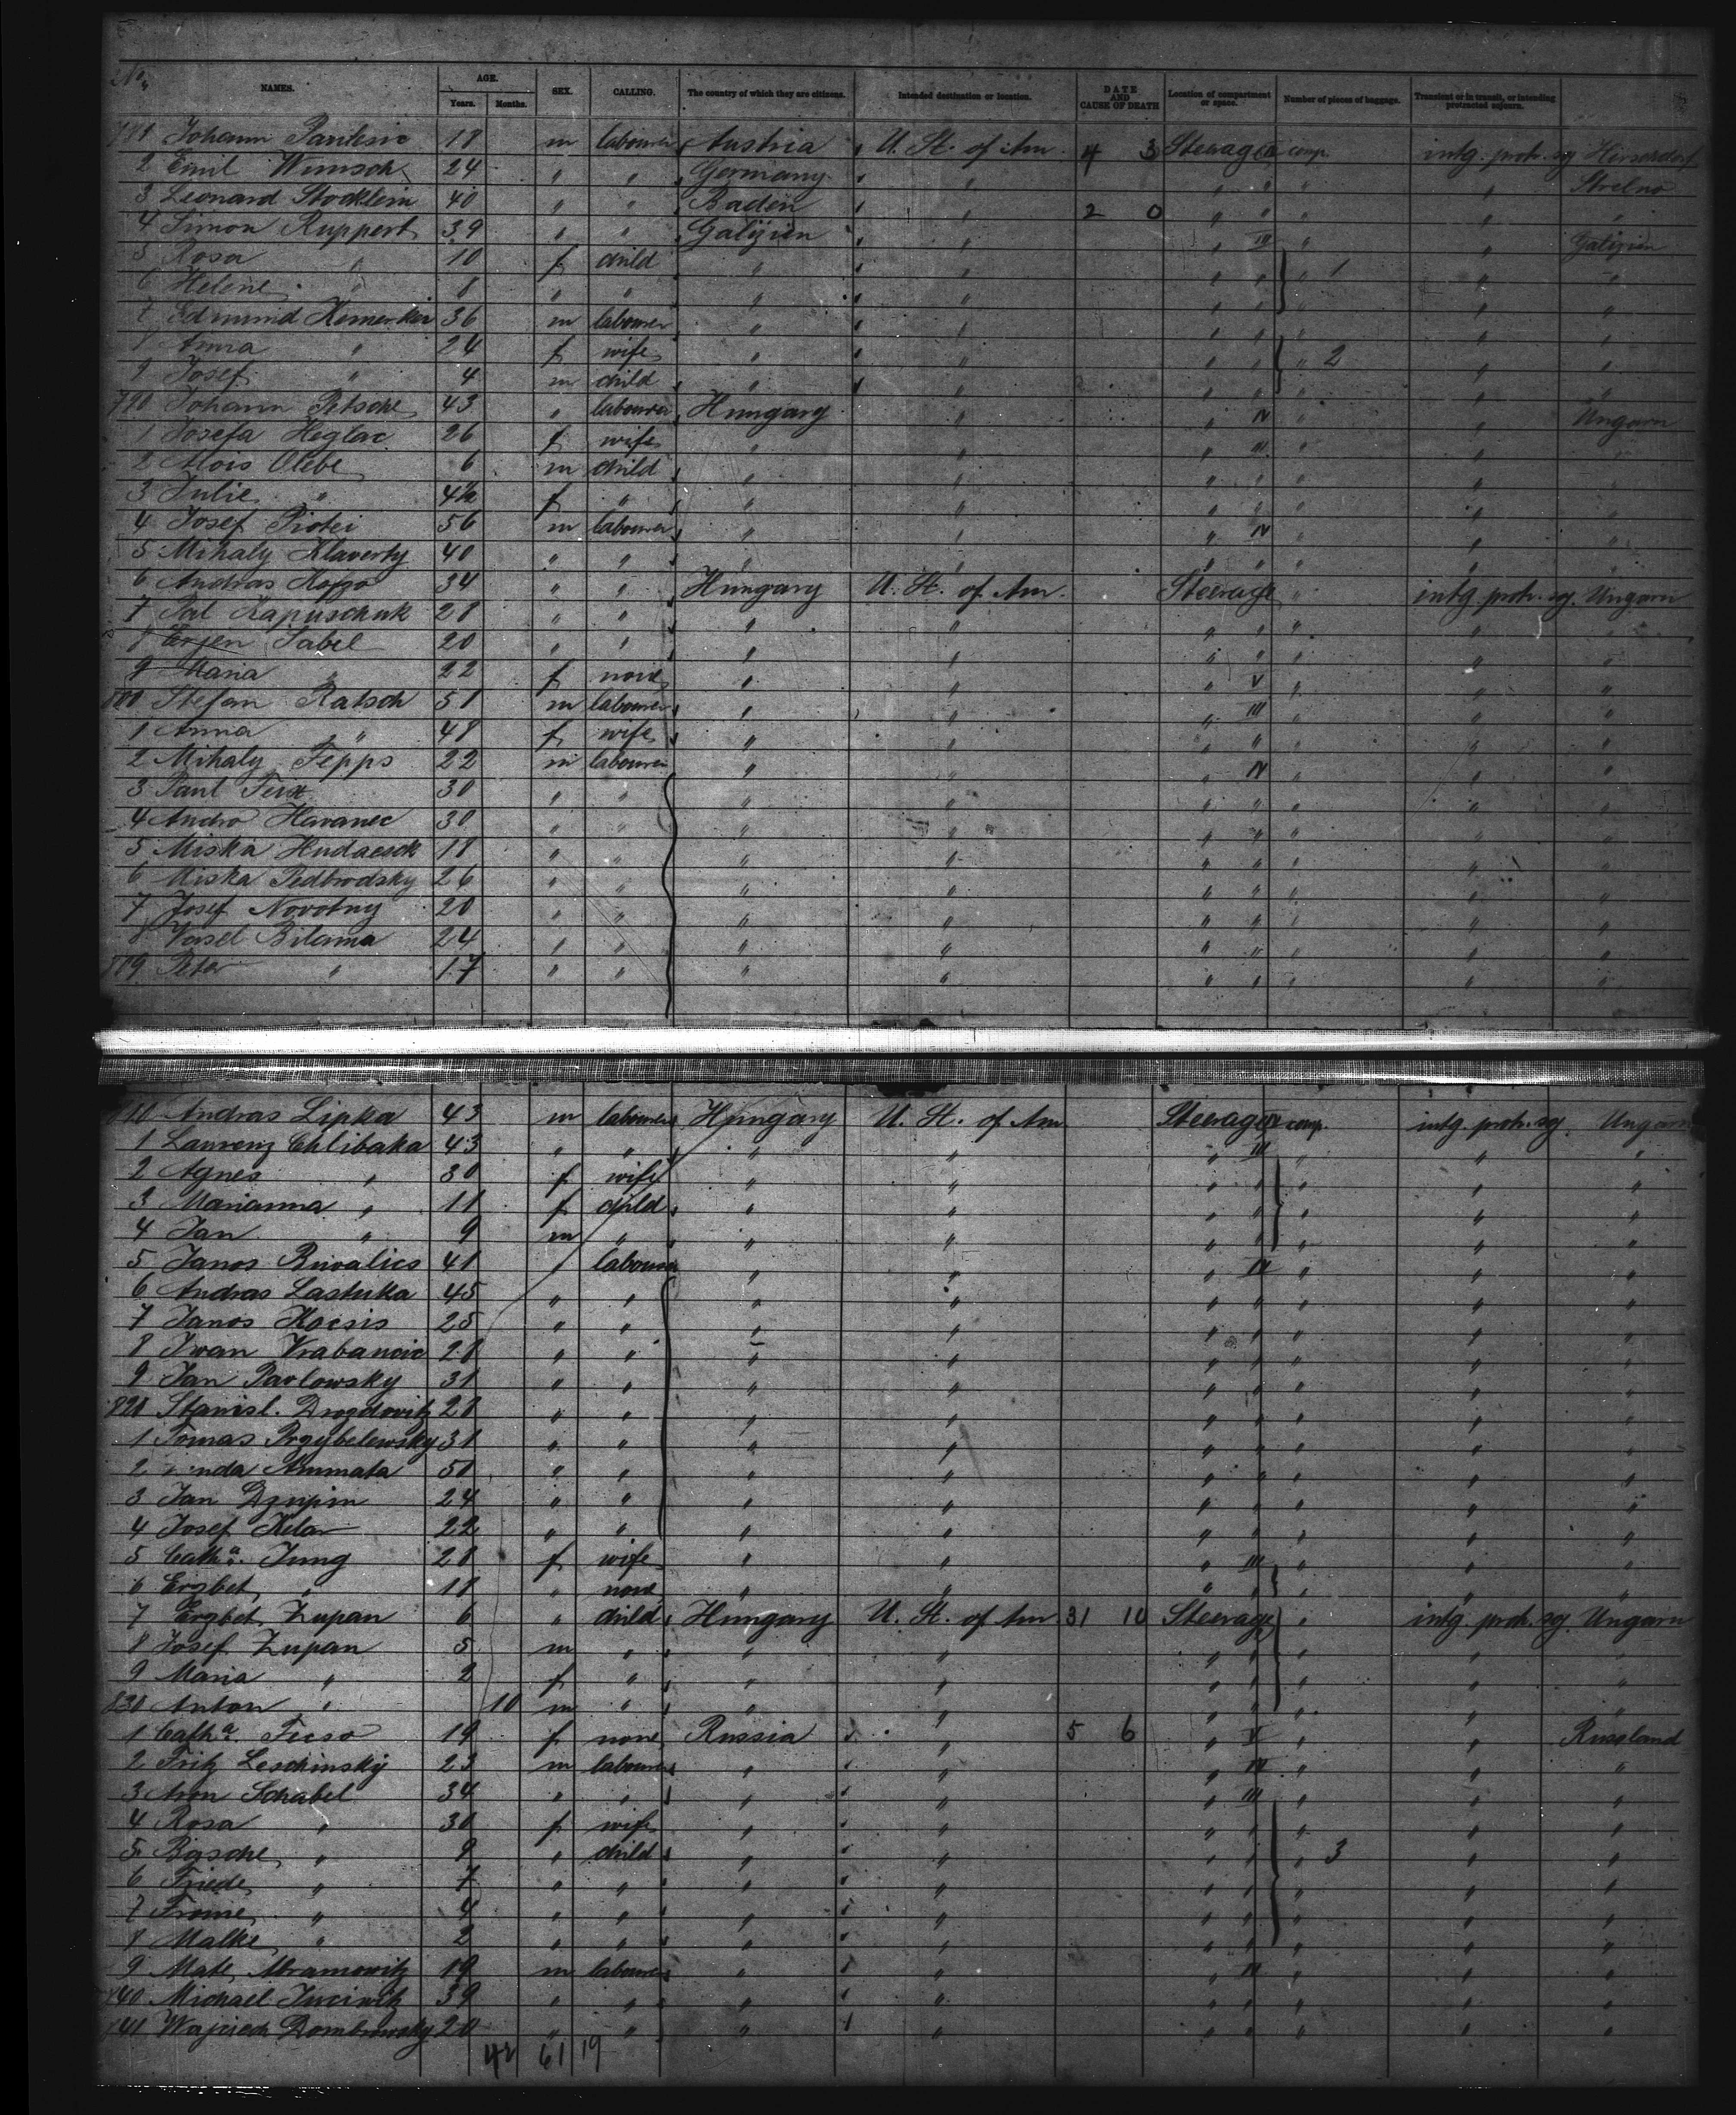 No.
NAMES. AGE. Years. Months. SEX. CALLING. The country of which they are citizens. Intended destination or location. DATE AND CAUSE OF DEATH Location of compartment or space. Number of pieces of baggage. Transient or in transit, or intending protracted sojourn.
Johann 18 m labourer Austria U. St. of Am. 4 3 Steerage comp. intg. protr. sg
2 Emil Wunsch 24 " " Germany " " " " " Strelno
3 Leonard Stocklein 40 " " Baden " 2 0 " " " " "
4 Simon Ruppert 39 " " Galizien " " III " " Galizien
5 Rosa " 10 f child " " " " " 1 " "
6 Helene " 8 " " " " " " " " "
7 Edmund 36 m labourer " " " " " " "
8 Anna " 24 f wife " " " " " 2 " "
9 Josef " 4 m child " " " " " " "
790 Johann Petsche 43 " labourer Hungary " " IV " " Ungarn
1 Josefa Heglac 26 f wife " " " III " " "
2 Alois Olebe 6 m child " " " " " " "
3 Julie " 4½ f " " " " " " " "
4 Josef 56 m labourer " " " IV " " "
5 Mihaly Klaverty 40 " " " " " " " " "
6 Andras 34 " " Hungary U. St. of Am. Steerage " intg. protr. sg. Ungarn
7 Pal Kapuschuk 28 " " " " " " " " "
8 Sabel 20 " " " " " " " " "
9 Maria " 22 f none " " " V " " "
800 Stefan Ratsch 51 m labourer " " " III " " "
1 Anna " 48 f wife " " " " " " "
2 Mihaly Fepps 22 m labourer " " " IV " " "
3 Paul 30 " " " " " " " " "
4 Andro Havanec 30 " " " " " " " " "
5 Miska Hudacsck 18 " " " " " " " " "
6 Miska Pedbrodsky 26 " " " " " " " " "
7 Josef Novotny 20 " " " " " " " " "
8 Vasel Bilama 24 " " " " " " " " "
809 Peter " 17 " " " " " " " " "
810 Andras Lipka 43 m labourer Hungary U. St. of Am Steerage IV comp. intg. protr. sg. Ungarn
1 Laurenz Chlibaka 43 " " " " " III " " "
2 Agnes " 30 f wife " " " " " " "
3 Marianna " 11 f child " " " " " " "
4 Jan " 9 m " " " " " " " "
5 Janos 41 " labourer " " " IV " " "
6 Andras Lastuka 45 " " " " " " " " "
7 Janos Kocsis 25 " " " " " " " " "
8 Iwan Vrabancic 28 " " " " " " " " "
9 Jan Pavlowsky 31 " " " " " " " " "
820 Stanisl. Drozdovitz 28 " " " " " " " " "
1 Tomas Przybelewsky 31 " " " " " " " " "
2 Ammata 50 " " " " " " " " "
3 Jan Dzupin 24 " " " " " " " " "
4 Josef Kelar 22 " " " " " " " " "
5 Catha. Jung 28 f wife " " " III " " "
6 Erzbet " 18 " none " " " " " " "
7 Erzbet Zupan 6 " child Hungary U. St. of Am 31 10 Steerage " intg. protr. sg. Ungarn
8 Josef Zupan 5 m " " " " " " " "
9 Maria " 2 f " " " " " " " "
830 Anton " 10 m " " " " " " " "
1 Catha. Fecso 19 f none Russia " 5 6 " V " " Russland
2 Fritz Leschinsky 23 m labourer " " " IV " " "
3 Aron Schabel 34 " " " " " III " " "
4 Rosa " 30 f wife " " " " " " "
5 Basche " 9 " child " " " " " 3 " "
6 Friede " 7 " " " " " " " " "
7 Frome " 4 " " " " " " " " "
8 Malke " 2 " " " " " " " " "
9 Mate Abramowitz 19 m labourer " " " IV " " "
840 Michael 39 " " " " " " " " "
841 Wojciech Dombrowsky 20 " " " " " " " " "
42 61 19